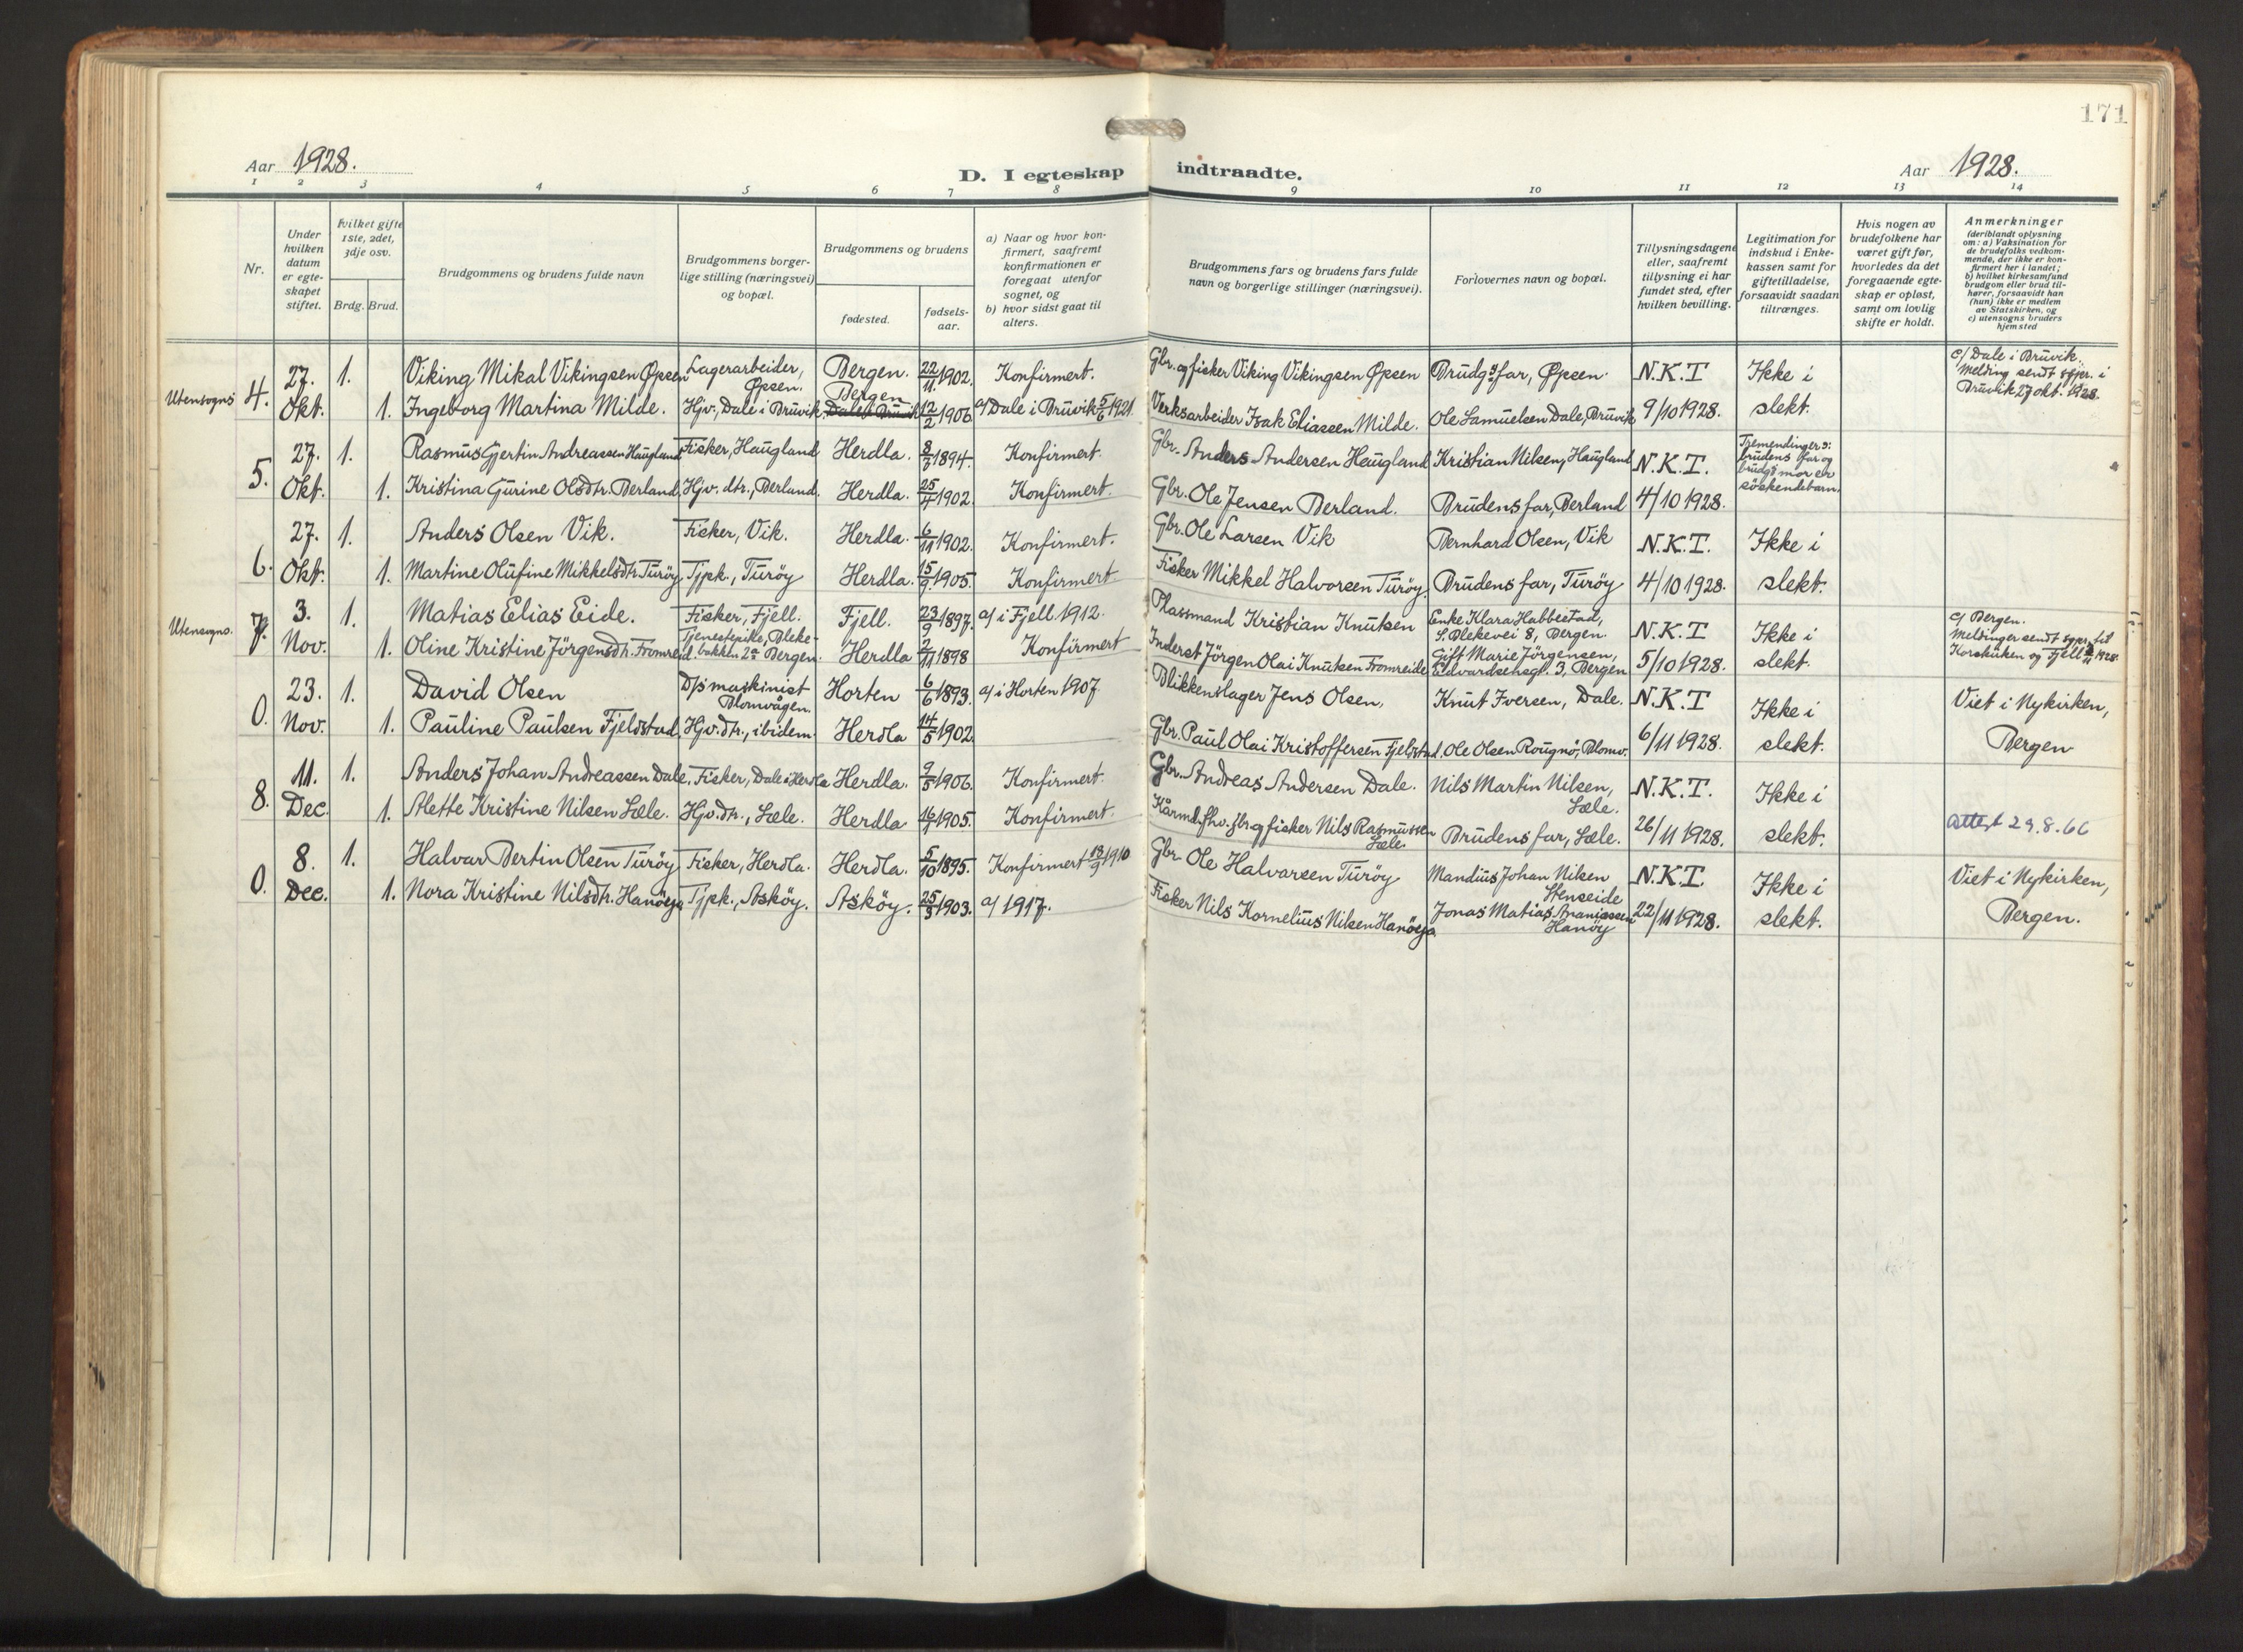 171
Aar 1928.
D. I egteskap indtraadte.
Aar 1928.
1 2 3 4 5 6 7 8 9 10 11 12 13 14
Nr.
Under hvilken datum er egteskapet stiftet.
Hvilket gifte 1ste, 2det, 3dje osv.
Brdg. Brud.
Brudgommens og brudens fulde navn
Brudgommens borgerlige stilling (næringsvei) og bopæl.
Brudgommens og brudens
fødested.
fødselsaar.
a) Naar og hvor konfirmert, saafremt konfirmationen er foregaat utenfor sognet, og
b) hvor sidst gaat til alters.
Brudgommens fars og brudens fars fulde navn og borgerlige stillinger (næringsvei).
Forlovernes navn og bopæl.
Tillysningsdagene eller, saafremt tillysning ei har fundet sted, efter hvilken bevilling.
Legitimation for indskud i Enkekassen samt for giftetilladelse, forsaavidt saadan tiltrænges.
Hvis nogen av brudefolkene har været gift før, hvorledes da det foregaaende egteskap er opløst, samt om lovlig skifte er holdt.
Anmerkninger
(deriblandt oplysning om: a) Vaksination for de brudefolks vedkommende, der ikke er konfirmert her i landet; b) hvilket kirkesamfund brudgom eller brud tilhører, forsaavidt han (hun) ikke er medlem av Statskirken, og c) utensogns bruders hjemsted
Utensogns 4. 27. Okt. 1. Viking Mikal Vikingsen Øpsen Lagerarbeider, Øpsen. Bergen. 22/11 1902. Konfirmert. Gbr. og fisker Viking Vikingsen Øpsen Brudg.s far, Øpsen. N.K.T Ikke i c/ Dale i Bruvik. Melding sendt sspr. i Bruvik 27 okt. 1928.
1. Ingeborg Martina Milde. Hjv., Dale i Bruvik. Bergen Dale i Bruvik 12/2 1906. a/ Dale i Bruvik 5/6 1921. Verksarbeider Isak Eliassen Milde. Ole Samuelsen Dale, Bruvik 9/10 1928. slekt.
5. 27. Okt. 1. Rasmus Gjertin Andreassen Haugland Fisker, Haugland Herdla. 8/7 1894. Konfirmert. Gbr. Anders Andersen Haugland Kristian Nilsen, Haugland N.K.T. Tremendinger ɔ: brudens far og brudgs mor er söskendebarn.
1. Kristina Gurine Olsdtr. Berland Hjv. dtr., Berland. Herdla. 1902. Konfirmert. Gbr. Ole Jensen Berland. Brudens far, Berland 4/10 1928.
6. 27. Okt. 1. Anders Olsen Vik. Fisker, Vik. Herdla. 6/11 1902. Konfirmert. Gbr. Ole Larsen Vik Bernhard Olsen, Vik N.K.T. Ikke i
1. Martine Olufine Mikkelsdtr. Turöy Tjpk., Turöy Herdla. 15/9 1905. Konfirmert Fisker Mikkel Halvorsen Turöy. Brudens far, Turöy 4/10 1928. slekt.
Utensogns. 7. 3. Nov. 1. Matias Elias Eide. Fisker, Fjell. Fjell. 23/9 1897. a/ i Fjell 1912. Plassmand Kristian Knutsen Enke Klara Habbestad, S. Blekevei 8, Bergen. N.K.T Ikke i c/ Bergen. Meldinger sendt sspr. til Korskirken og Fjell 1928.
1. Oline Kristine Jörgensdtr. Fromreid. Tjenestepike, Blekebakken 2a Bergen. Herdla 2/11 1898 Konfirmert Inderst Jörgen Olai Knutsen Fromreide Gift Marie Jörgensen, Edvardsensgt. 3, Bergen 5/10 1928. slekt.
0. 23. Nov. 1. David Olsen D/s maskinist Blomvågen. Horten 6/6 1893. a/ i Horten 1907. Blikkenslager Jens Olsen, Knut Iversen, Dale. N.K.T Ikke i Viet i Nykirken,
1. Pauline Paulsen Fjeldstad, Hjv. dtr., ibidem. Herdla 14/5 1902. Gbr. Paul Olai Kristoffersen Fjeldstad. Ole Olsen Rougnö, Blomv. 6/11 1928. slekt. Bergen
8. 11. Dec. 1. Anders Johan Andreassen Dale. Fisker, Dale i Herdla Herdla. 9/5 1906. Konfirmert. Gbr. Andreas Andersen Dale. Nils Martin Nilsen, Sæle. N.K.T. Ikke i
1. Alette Kristine Nilsen Sæle. Hjv. dtr., Sæle. Herdla 1905. Konfirmert. Kårmd. fhv. gbr. og fisker Nils Rasmussen Sæle. Brudens far, Sæle. 26/11 1928. slekt. Attest 29.8.66
0. 8. Dec. 1. Halvar Bertin Olsen Turöy Fisker, Herdla. Herdla. 5/10 1895. Konfirmert 18/9 1910 Gbr. Ole Halvarsen Turöy Mandius Johan Nilsen Stenseide N.K.T. Ikke i Viet i Nykirken,
1. Nora Kristine Nilsdtr. Hanöy Tjpk., Asköy. Asköy. 25/3 1903. a/ 1917. Fisker Nils Kornelius Nilsen Hanöy Jonas Matias Ananiassen Hanöy 22/11 1928. slekt. Bergen.